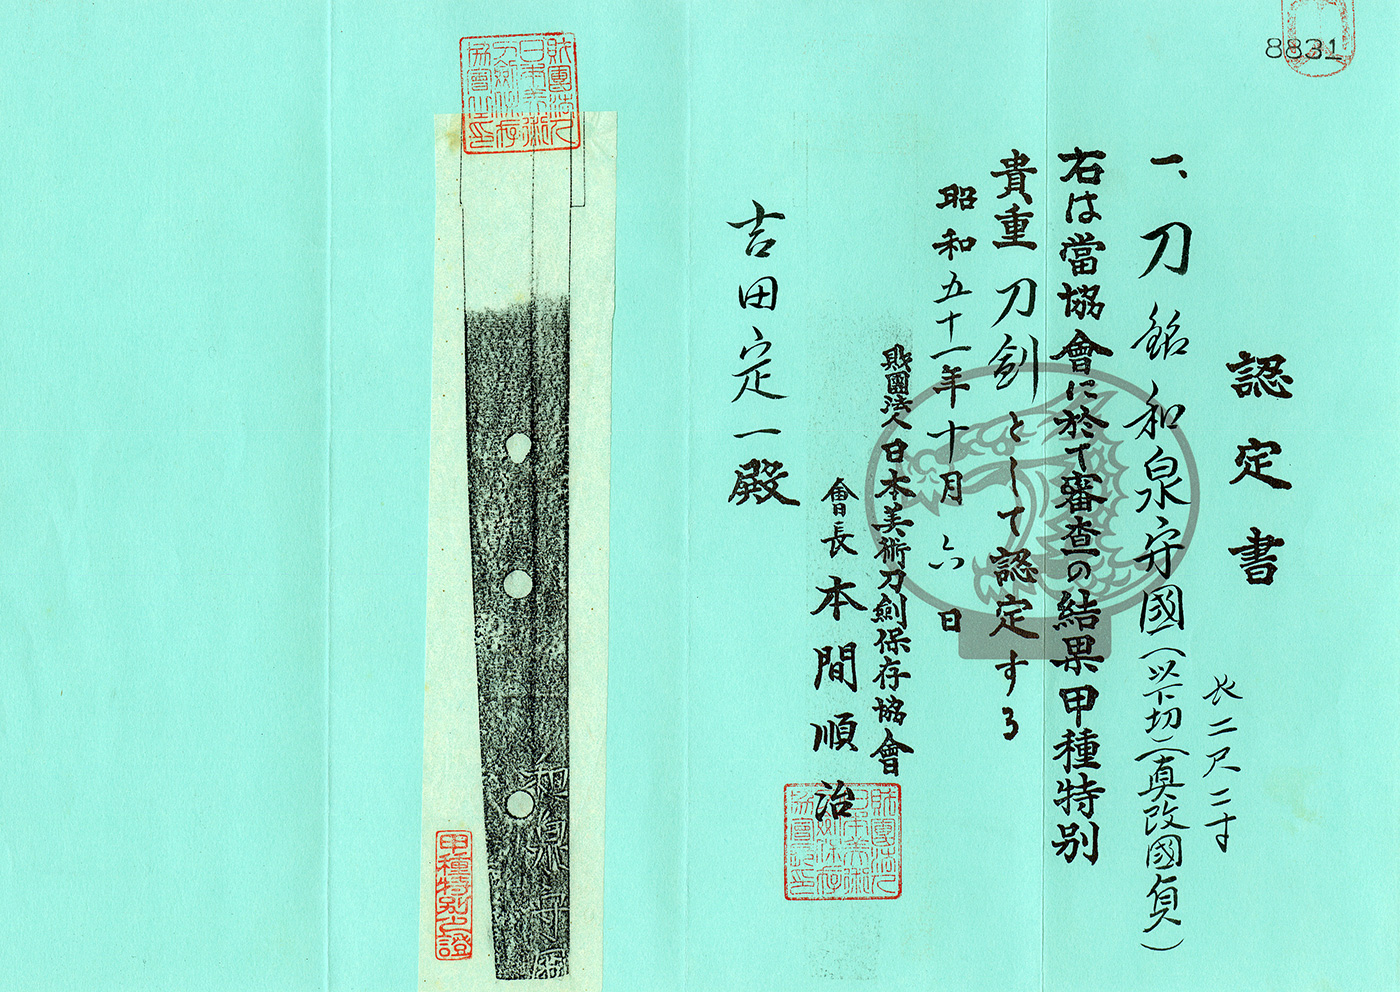 8831
認定書
一、刀 銘 和泉守國(以下切)(真改國貞)
長二尺二寸
右は當協會に於て審査の結果甲種特別
貴重刀剣として認定する
昭和五十一年十月六日
財團法人日本美術刀劍保存協會
會長 本間順治
吉田定一殿
財團法人日本美術刀劍保存協會之印
和泉守国
甲種特別之證